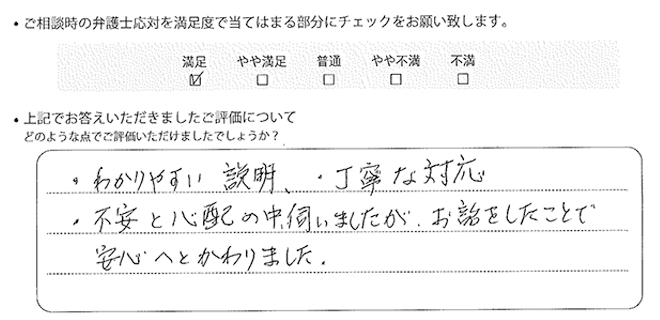 ・ご相談時の弁護士応対を満足度で当てはまる部分にチェックをお願い致します。
満足 やや満足 普通 やや不満 不満
☑ ☐ ☐ ☐ ☐
・上記でお答えいただきましたご評価について
どのような点でご評価いただけましたでしょうか？
・わかりやすい説明、・丁寧な対応
・不安と心配の中、伺いましたが、お話をしたことで
安心へとかわりました。